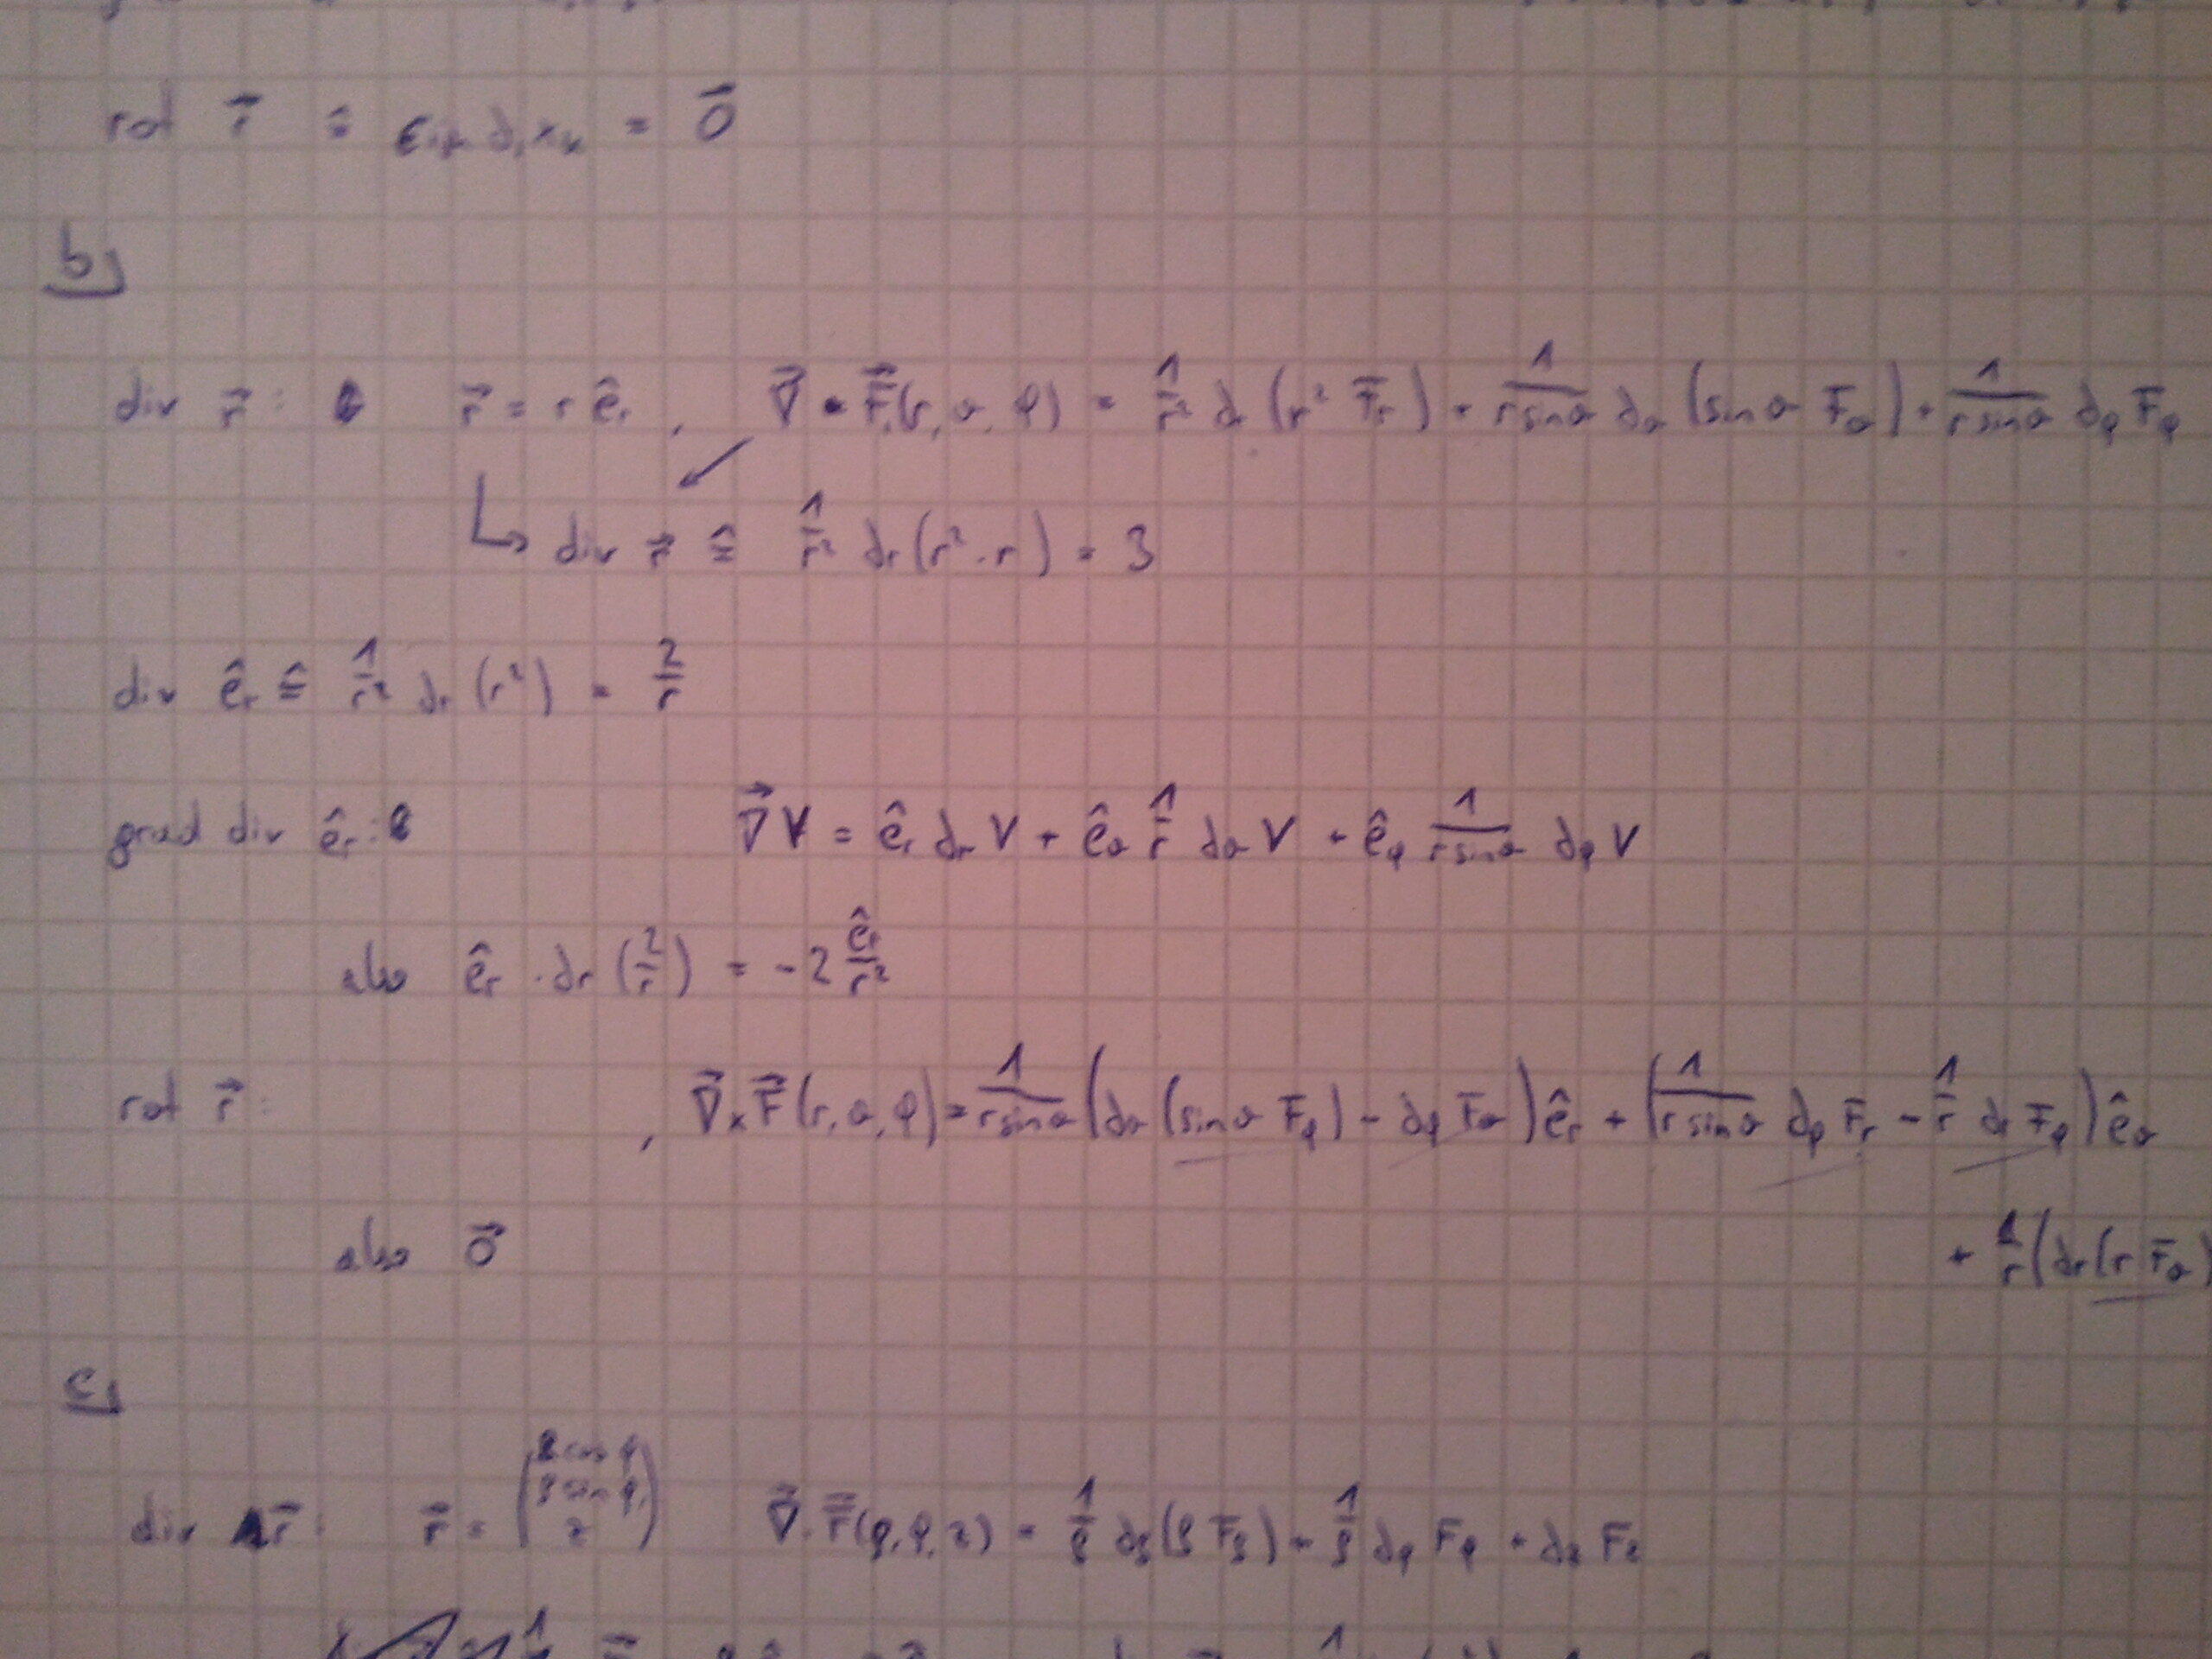 rot r⃗ ≙ ε_ijk ∂_j x_k = 0⃗
b)
div r⃗ : r⃗ = r ê_r , ∇⃗ • F⃗(r, θ, φ) = 1/r² ∂_r (r² F_r) + 1/(r sinθ) ∂_θ (sinθ F_θ) + 1/(r sinθ) ∂_φ F_φ
↳ div r⃗ ≙ 1/r² ∂_r (r² · r) = 3
div ê_r ≙ 1/r² ∂_r (r²) = 2/r
grad div ê_r : ∇⃗V = ê_r ∂_r V + ê_θ 1/r ∂_θ V + ê_φ 1/(r sinθ) ∂_φ V
also ê_r · ∂_r (2/r) = -2 ê_r/r²
rot r⃗ : , ∇⃗ × F⃗ (r, θ, φ) = 1/(r sinθ) (∂_θ (sinθ F_φ) - ∂_φ F_θ) ê_r + (1/(r sinθ) ∂_φ F_r - 1/r ∂_r F_φ) ê_θ
+ 1/r (∂_r (r F_θ)
also 0⃗
c)
div r⃗ : r⃗ = (ρ cos φ, ρ sin φ, z) ∇⃗ · F⃗ (ρ, φ, z) = 1/ρ ∂_ρ (ρ F_ρ) + 1/ρ ∂_φ F_φ + ∂_z F_z